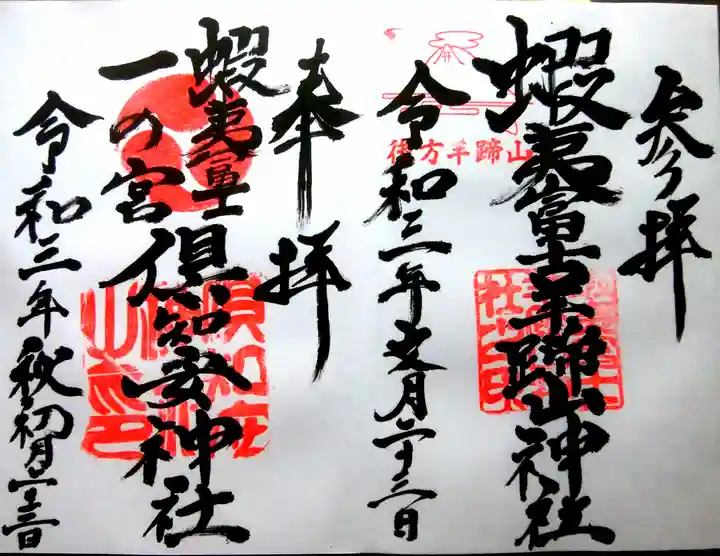 参拝
蝦夷富士羊蹄山神社
後方羊蹄山
令和三年文月二十三日
奉拝
蝦夷富士
一の宮 倶知安神社
令和三年秋初月二十三日